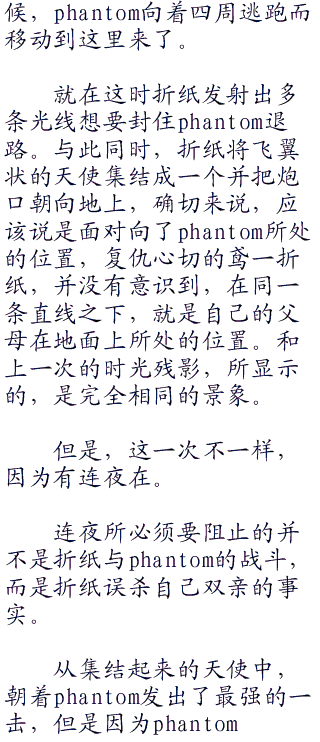 候，phantom向着四周逃跑而
移动到这里来了。
就在这时折纸发射出多
条光线想要封住phantom退
路。与此同时，折纸将飞翼
状的天使集结成一个并把炮
口朝向地上，确切来说，应
该说是面对向了phantom所处
的位置，复仇心切的鸢一折
纸，并没有意识到，在同一
条直线之下，就是自己的父
母在地面上所处的位置。和
上一次的时光残影，所显示
的，是完全相同的景象。
但是，这一次不一样，
因为有连夜在。
连夜所必须要阻止的并
不是折纸与phantom的战斗，
而是折纸误杀自己双亲的事
实。
从集结起来的天使中，
朝着phantom发出了最强的一
击，但是因为phantom